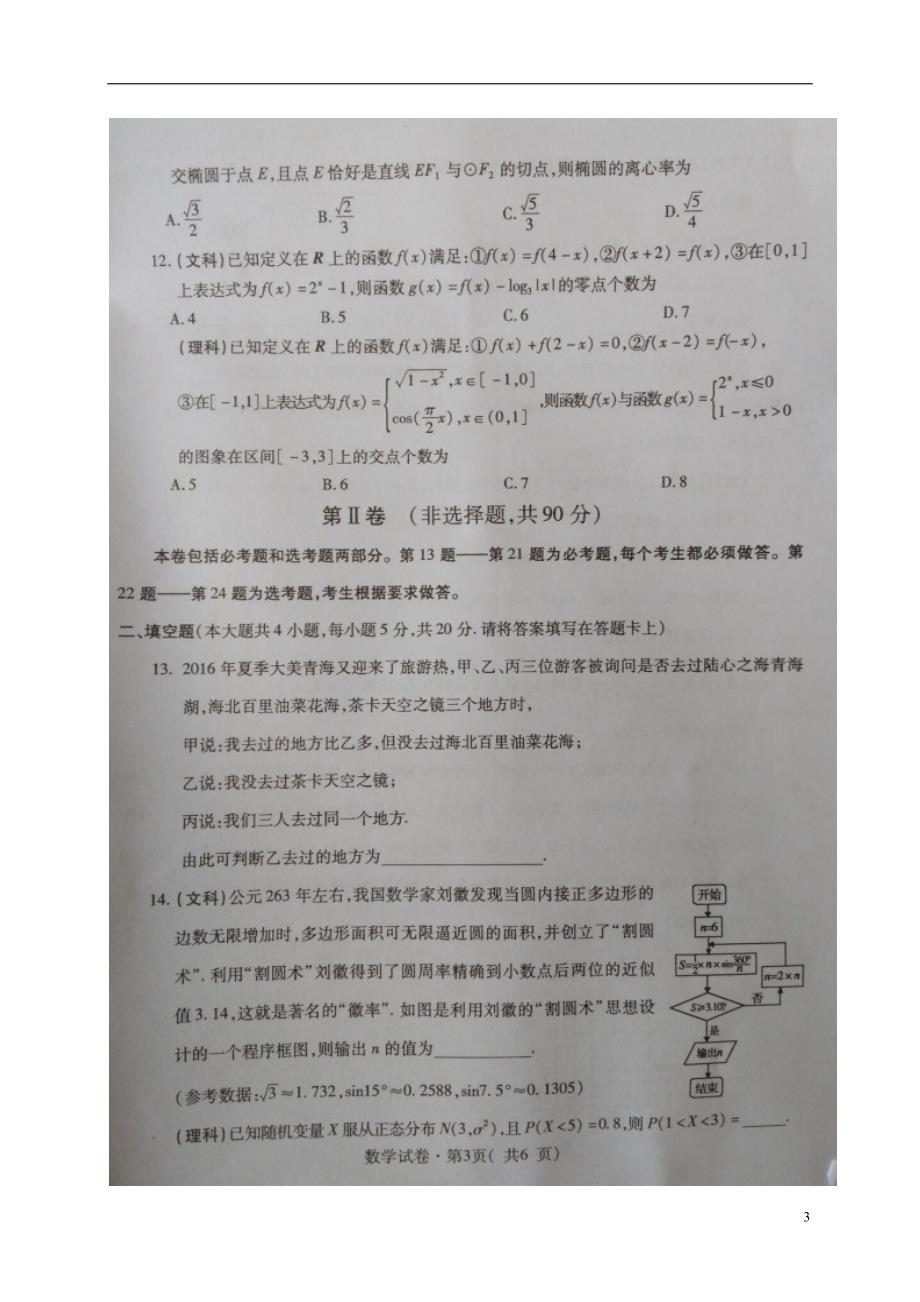 交椭圆于点E,且点E恰好是直线EF₁与⊙F₂的切点,则椭圆的离心率为
A.√3/2 B.√2/3 C.√5/3 D.√5/4
12.(文科)已知定义在R上的函数f(x)满足:①f(x)=f(4-x),②f(x+2)=f(x),③在[0,1]
上表达式为f(x)=2ˣ-1,则函数g(x)=f(x)-log₃|x|的零点个数为
A.4 B.5 C.6 D.7
(理科)已知定义在R上的函数f(x)满足:①f(x)+f(2-x)=0,②f(x-2)=f(-x),
③在[-1,1]上表达式为f(x)={√(1-x²),x∈[-1,0] cos(π/2 x),x∈(0,1] ,则函数f(x)与函数g(x)={2ˣ,x≤0 1-x,x>0
的图象在区间[-3,3]上的交点个数为
A.5 B.6 C.7 D.8
第Ⅱ卷 (非选择题,共90分)
本卷包括必考题和选考题两部分。第13题——第21题为必考题,每个考生都必须做答。第
22题——第24题为选考题,考生根据要求做答。
二、填空题(本大题共4小题,每小题5分,共20分.请将答案填写在答题卡上)
13. 2016年夏季大美青海又迎来了旅游热,甲、乙、丙三位游客被询问是否去过陆心之海青海
湖,海北百里油菜花海,茶卡天空之镜三个地方时,
甲说:我去过的地方比乙多,但没去过海北百里油菜花海;
乙说:我没去过茶卡天空之镜;
丙说:我们三人去过同一个地方.
由此可判断乙去过的地方为________.
14.(文科)公元263年左右,我国数学家刘徽发现当圆内接正多边形的
边数无限增加时,多边形面积可无限逼近圆的面积,并创立了“割圆
术”.利用“割圆术”刘徽得到了圆周率精确到小数点后两位的近似
值3.14,这就是著名的“徽率”.如图是利用刘徽的“割圆术”思想设
计的一个程序框图,则输出n的值为________.
(参考数据:√3≈1.732,sin15°≈0.2588,sin7.5°≈0.1305)
开始
n=6
S=1/2×n×sin360°/n
n=2×n
S≥3.10?
否
是
输出n
结束
(理科)已知随机变量X服从正态分布N(3,σ²),且P(X<5)=0.8,则P(1<X<3)=____.
数学试卷·第3页(共6页)
3